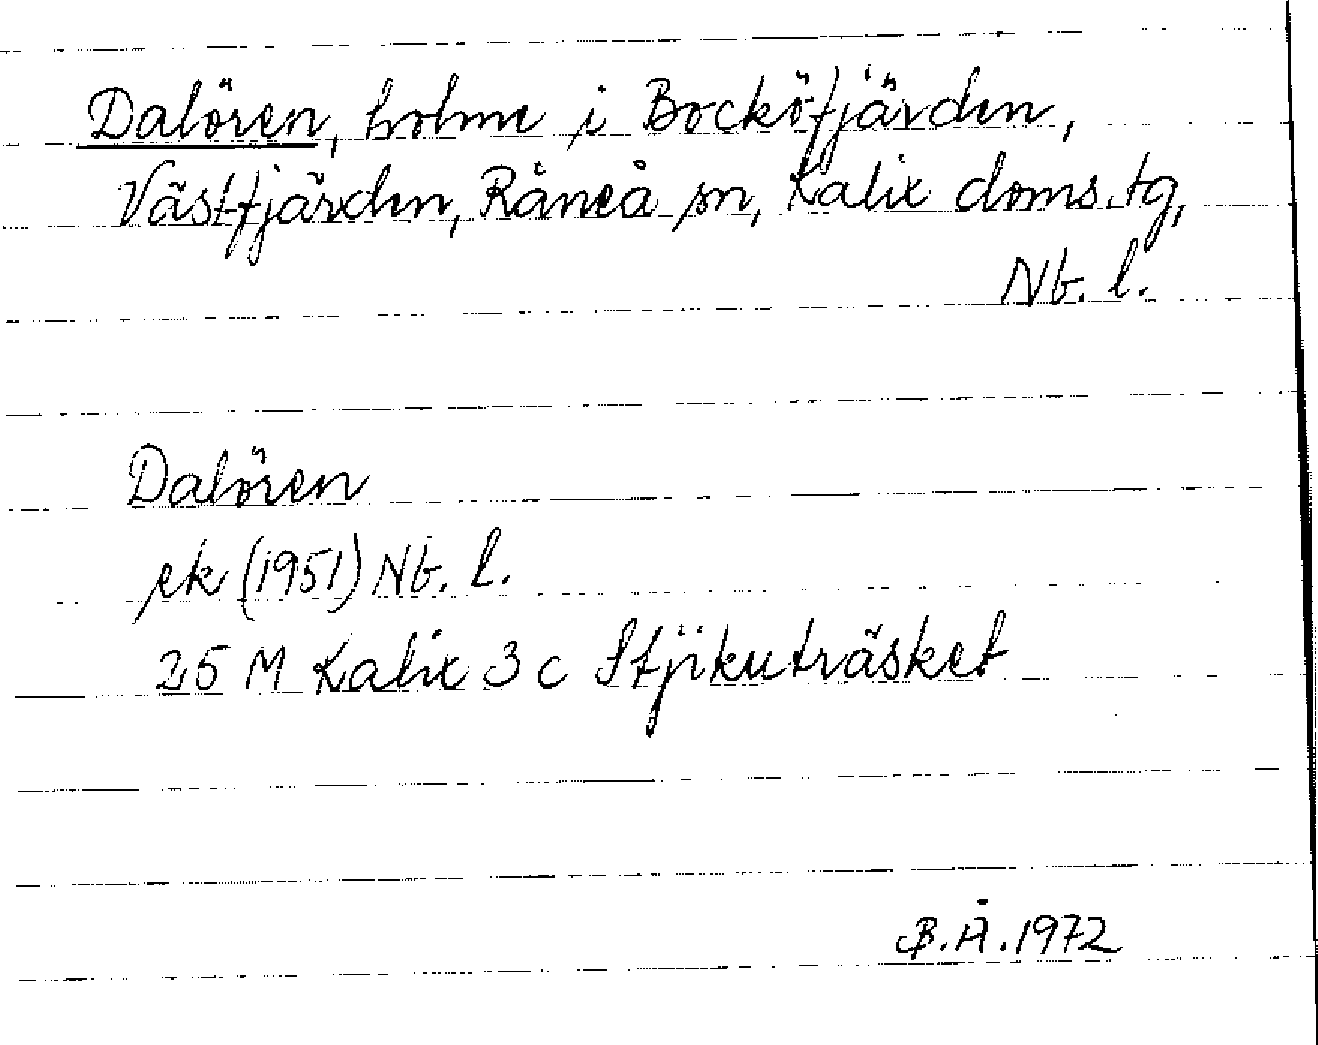 Dalören, holme i Bocköfjärden,
Västfjärden, Råneå sn, Kalix doms.tg,
Nb. l.
Dalören
ek (1951) Nb. l.
25 M Kalix 3 c Stjikuträsket
B.Å.1972